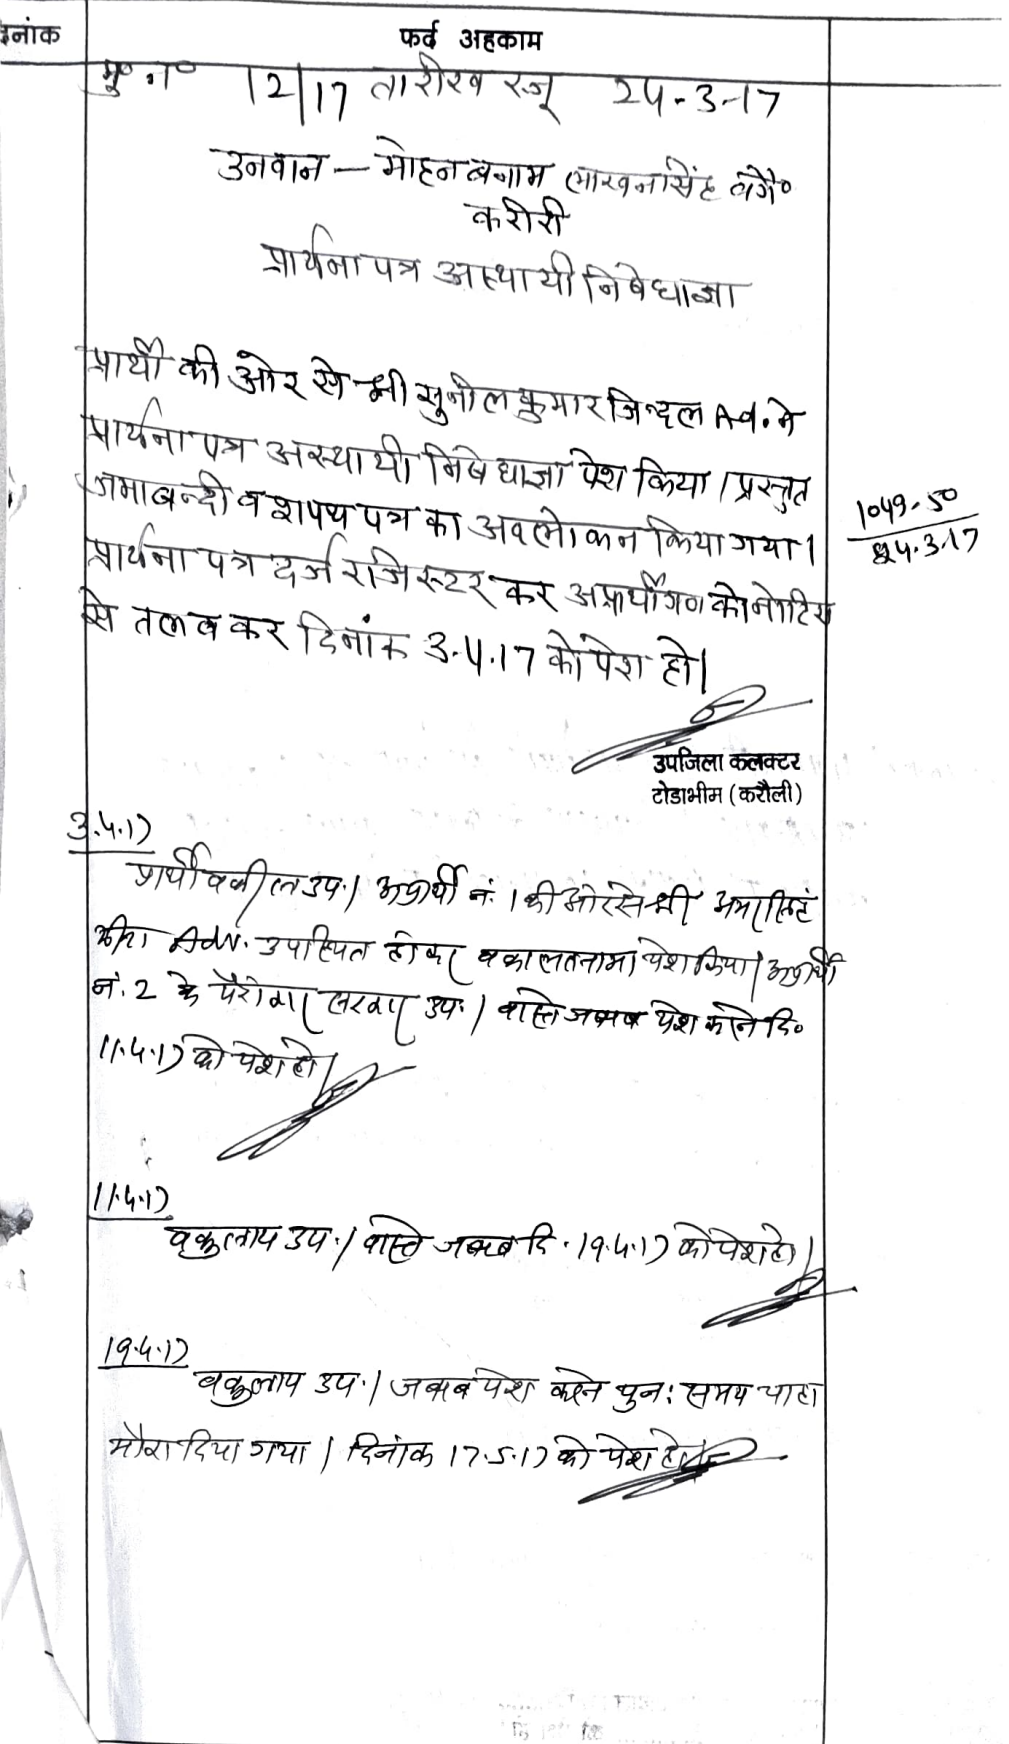 दिनांक
फर्द अहकाम
मु० न० 12/17 तारीख रजू 24-3-17
उनवान - मोहन बनाम लाखनसिंह वगै०
करीरी
प्रार्थना पत्र अस्थायी निषेधाज्ञा
प्रार्थी की ओर से श्री सुनील कुमार जिन्दल Ad. ने
प्रार्थना पत्र अस्थायी निषेधाज्ञा पेश किया। प्रस्तुत
जमाबन्दी व शपथ पत्र का अवलोकन किया गया।
1049-50
24.3.17
प्रार्थना पत्र दर्ज रजिस्टर कर अप्रार्थीगण को नोटिस
से तलब कर दिनांक 3.4.17 को पेश हो।
उपजिला कलक्टर
टोडाभीम (करौली)
3.4.17
प्रार्थी वकील उप.। अप्रार्थी नं. 1 की ओर से श्री
मीना Adv. उपस्थित होकर वकालतनामा पेश किया। अप्रार्थी
नं. 2 के पैरोकार सरकार उप.। वास्ते जबाब पेश करने दि०
11.4.17 को पेश हो।
11.4.17
वकुलाय उप.। वास्ते जबाब दि. 19.4.17 को पेश हो।
19.4.17
वकुलाय उप.। जबाब पेश करने पुन: समय चाहा
मौका दिया गया। दिनांक 17.5.17 को पेश हो।